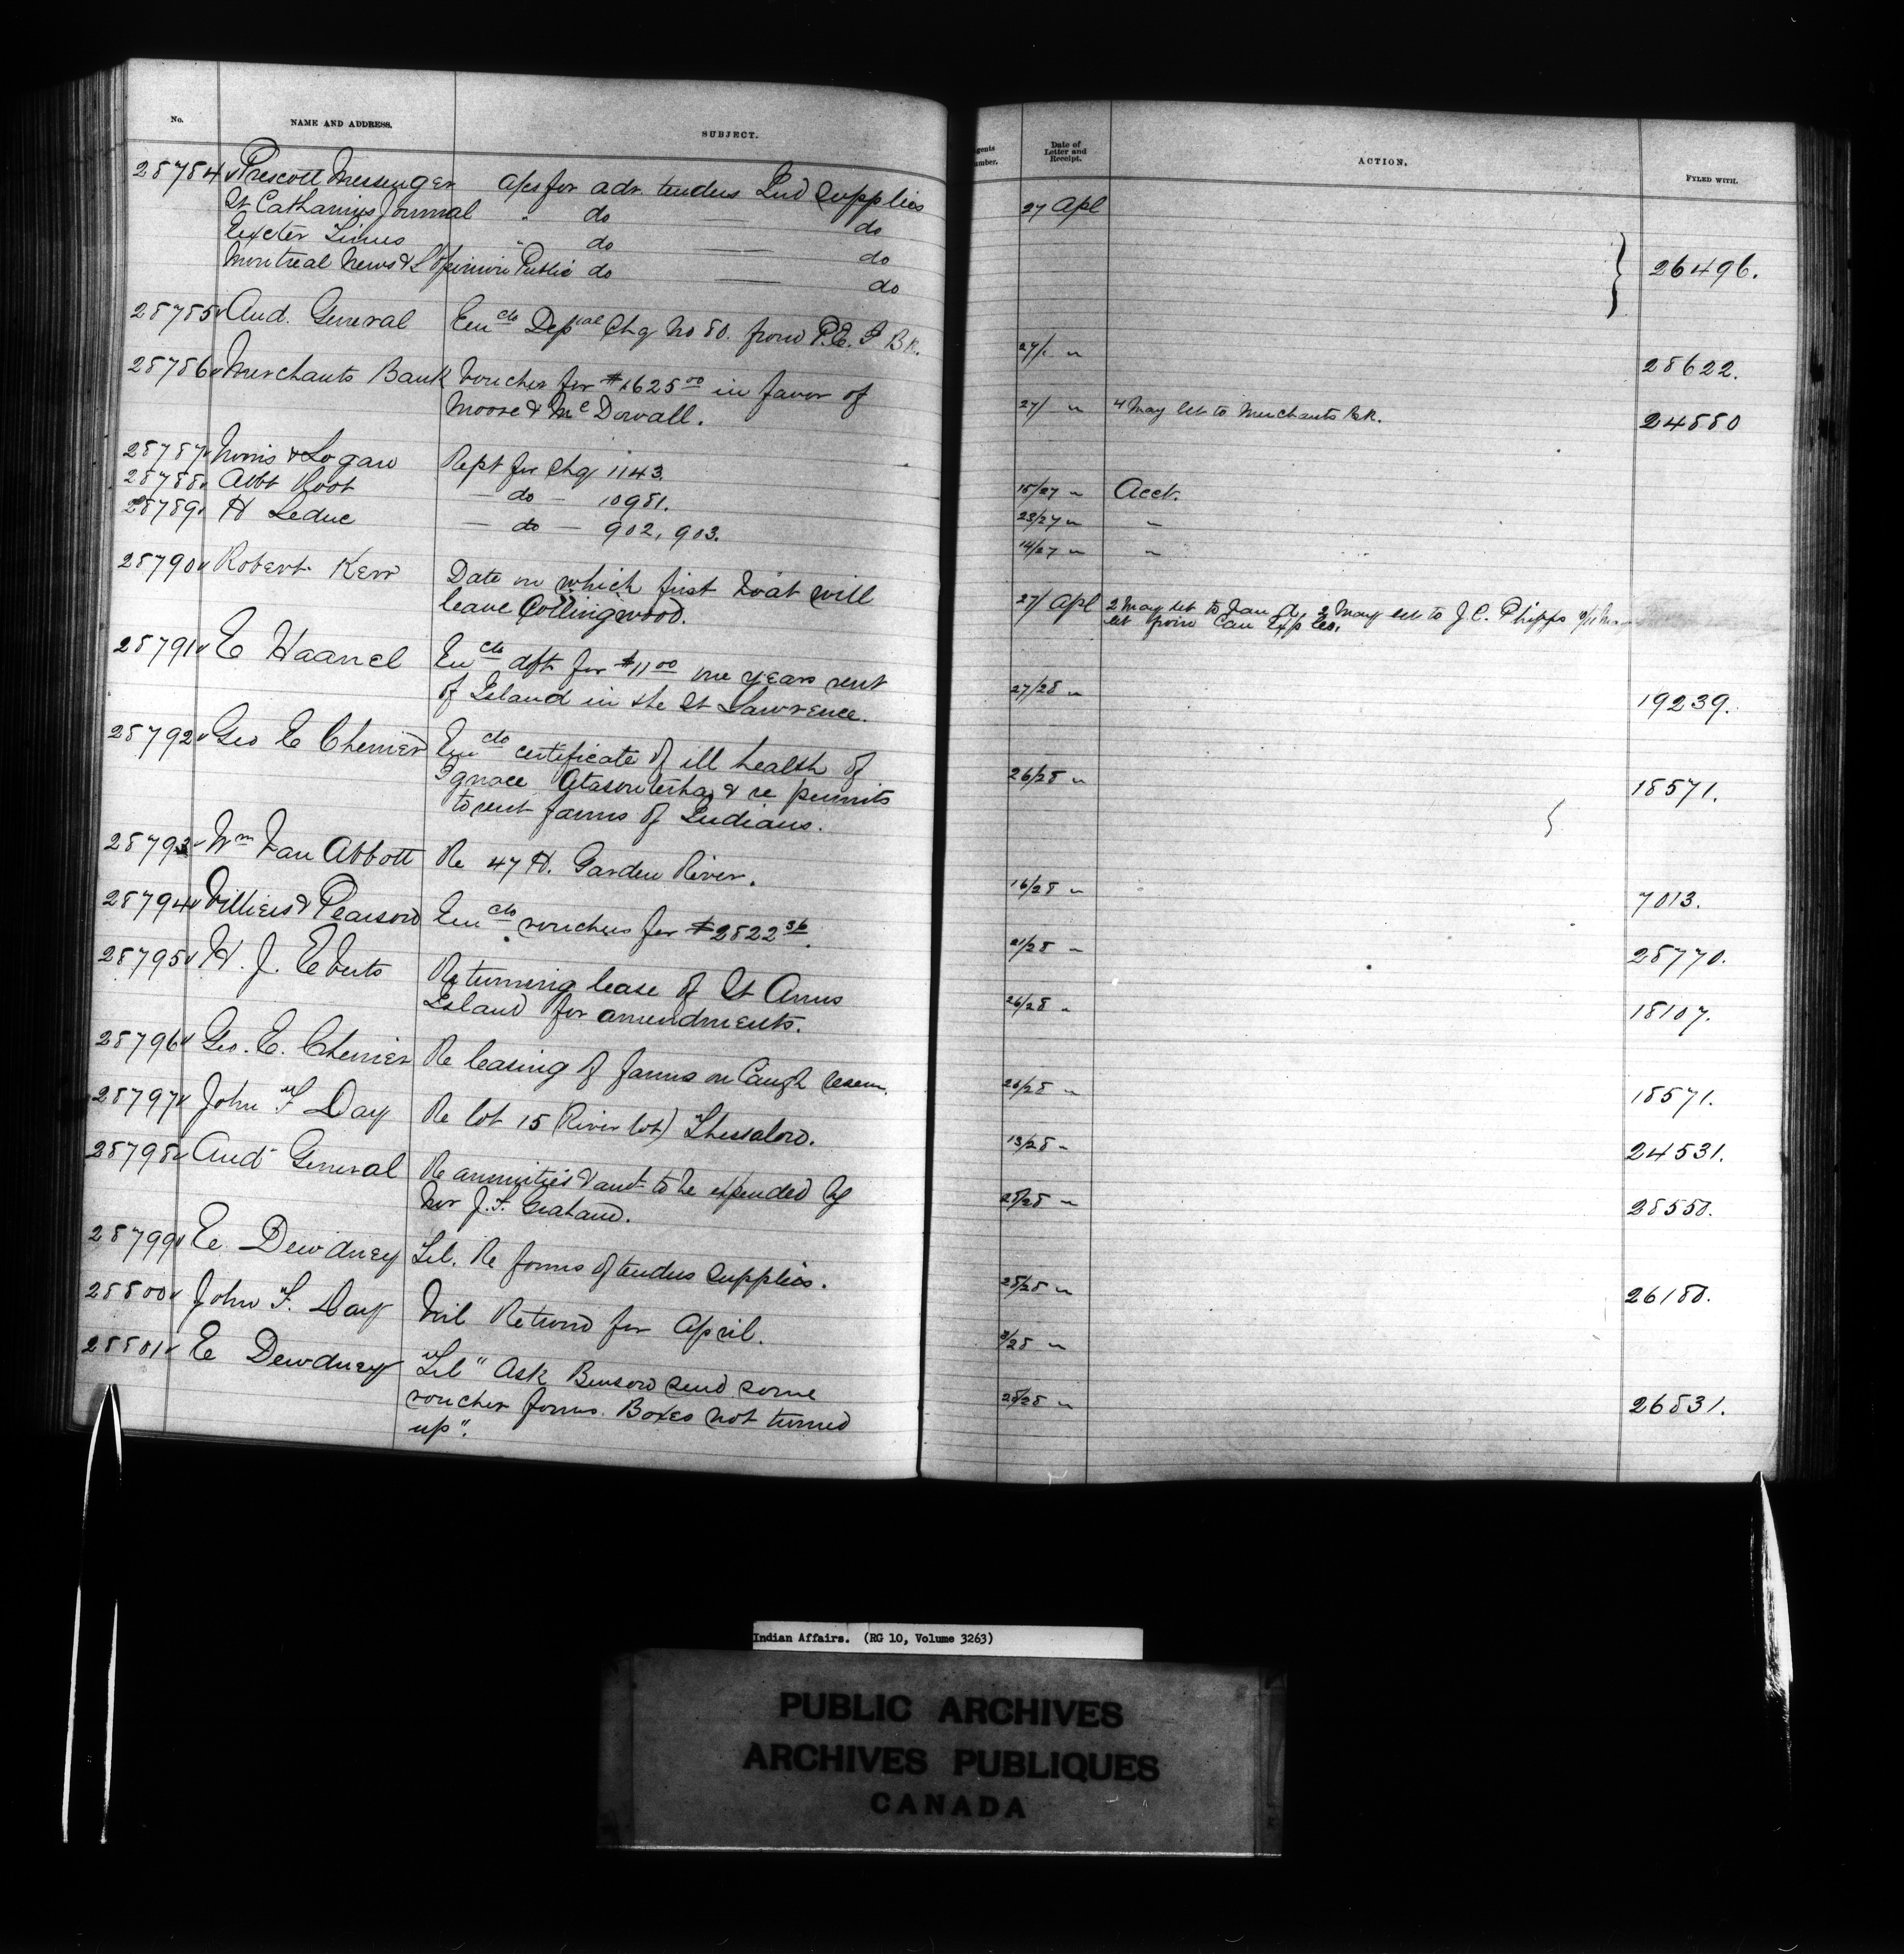 No. NAME AND ADDRESS. SUBJECT. Date of Letter and Receipt. ACTION. FYLED WITH.
28784 Prescott Messenger aps for adv. tenders Ind Supplies 27 Apl
St Catharines Journal " do do
Exeter Times " do do 26496.
Montreal News & L'Opinion Public do do
28785 Aud. General Encls Deptal Chq No 80. from P.E.I Bk. 27/ " 28622.
28786 Merchants Bank Voucher for $1625.00 in favor of 27/ " 4 May let to Merchants Bk. 24880
Moore & McDowall.
28787 Norris & Logan Rept for Chq 1143. 15/27 " Acct.
28788 Abbt Root — do — 10981. 23/27 " "
28789 H Leduc — do — 902, 903. 14/27 " "
28790 Robert Kerr Date on which first boat will 27/ Apl 2 May let to Van A, 2 May let to J.C. Phipps
leave Collingwood. let from Can Exp Co.
28791 E Haanel Encls dft for $11.00 one years rent 27/28 " 19239.
of Island in the St Lawrence.
28792 Geo E Cherrier Encls certificate of ill health of 26/28 " 18571.
Ignace & re permits
to rent farms of Indians.
28793 Wm Van Abbott Re 47 H. Garden River. 16/28 " 7013.
28794 Villiers & Pearson Encls vouchers for $2822.36. 21/28 " 28770.
28795 H. J. Eberts Returning lease of St Anns 26/28 " 18107.
Island for amendments.
28796 Geo. E. Cherrier Re leasing of farms on Caugh reserve. 26/28 " 18571.
28797 John F Day Re lot 15 (River lot) Thessalon. 13/28 " 24531.
28798 Aud General Re annuities & amt to be expended by 28/28 " 28550.
Mr J. F. Graham.
28799 E. Dewdney Tel. Re forms of tenders supplies. 28/28 " 26180.
28800 John F. Day Nil Return for April. 3/28 "
28801 E Dewdney "Tel" Ask Benson send some 28/28 " 26831.
voucher forms. Boxes not turned
up".
Indian Affairs. (RG 10, Volume 3263)
PUBLIC ARCHIVES
ARCHIVES PUBLIQUES
CANADA